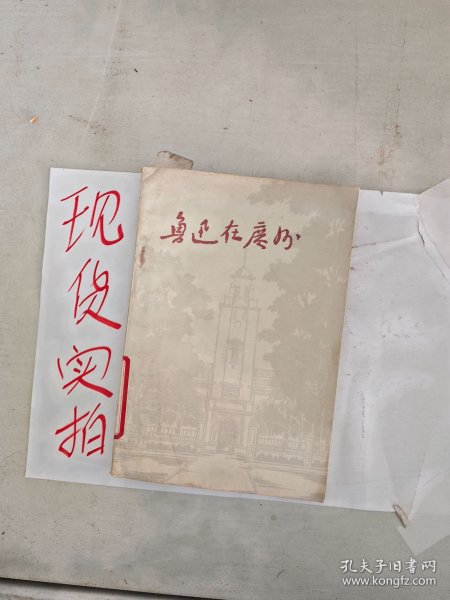 现货实拍
鲁迅在廣州
孔夫子旧书网
www.kongfz.com